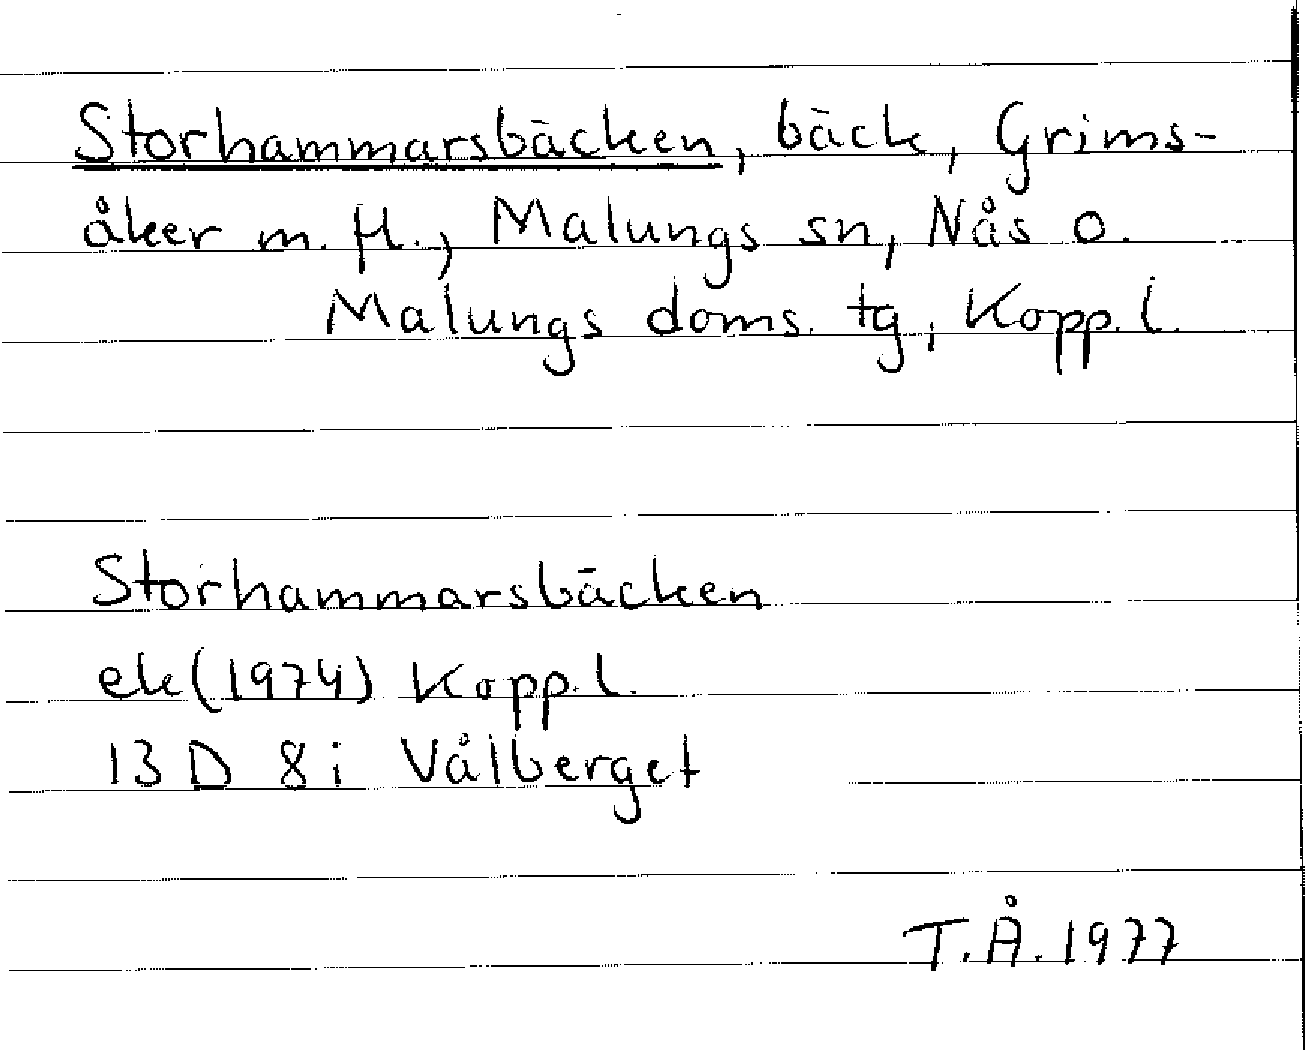 Storhammarsbäcken, bäck, Grims-
åker m. fl., Malungs sn, Nås o.
Malungs doms. tg, Kopp. l.
Storhammarsbäcken
ek (1974) Kopp. l.
13 D 8 i Vålberget
T.Å. 1977